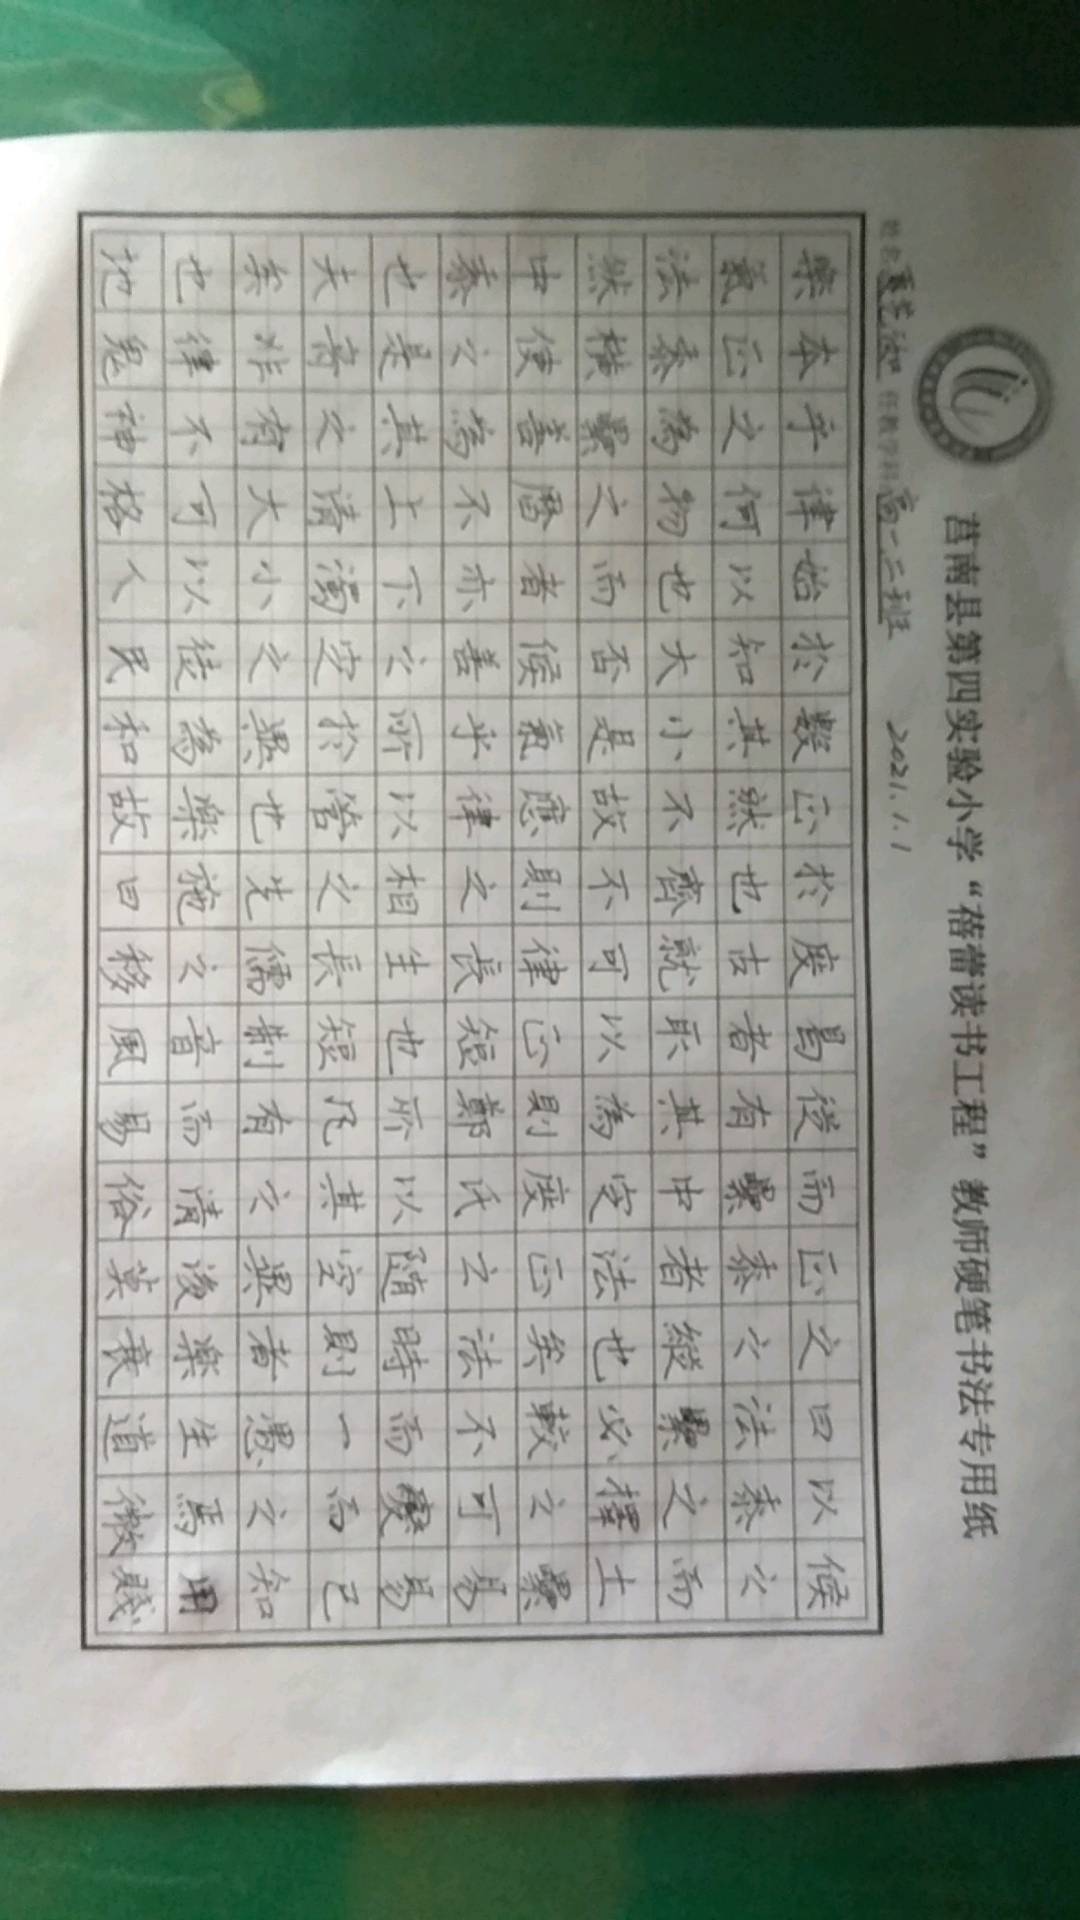 莒南县第四实验小学“蓓蕾读书工程”教师硬笔书法专用纸
姓名 任教学科 高一二班 2021.1.1
樂本乎律始於數正於度曷從而正之曰以候
氣正之何以知其然也古者有纍黍之法黍之
法黍為物也大小不齊就取其中者縱纍之而
然橫纍之而否是故不可以為定法也必擇土
中使善曆者候氣應則律正則度正矣較之纍
黍之為不亦善乎律之長短鄭氏之法不可易
也是其上下之所以相生也所以隨時而變易
夫音之清濁定於管之長短凡其空則一而已
矣非有大小之異也先儒制有之異者愚之知
也律不可以徒為樂施之音而清後樂生焉用
地鬼神格人民和故曰移風易俗莫衰道微賤